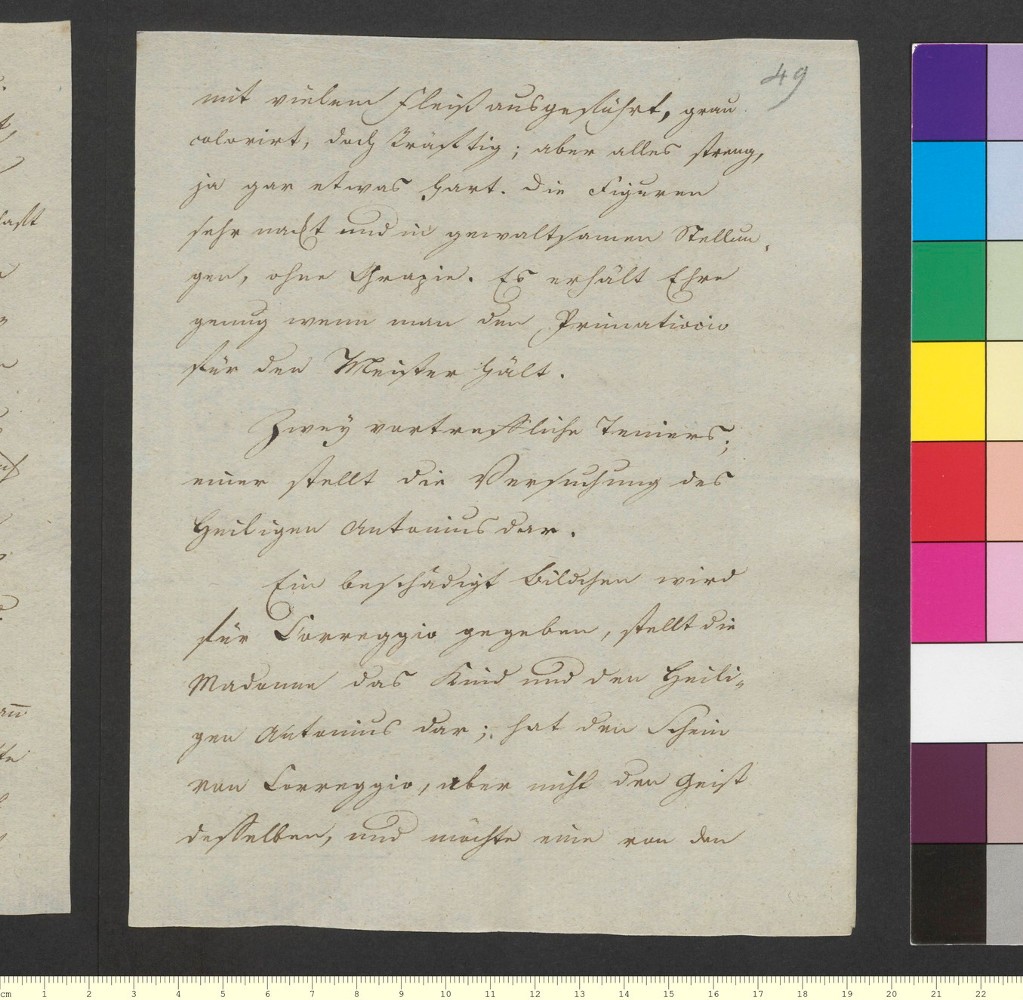 49
mit vielem Fleiß ausgeführt, grau
colorirt, doch kräfftig; aber alles streng,
ja gar etwas hart. Die Figuren
sehr nackt und in gewaltsamen Stellun,
gen, ohne Grazie. Es erhält Ehre
genug wenn man den Primatiocio
für den Meister hält.
Zwey vortreffliche Teniers;
einer stellt die Versuchung des
Heiligen Antonius dar.
Ein beschädigt Bildchen wird
für Correggio gegeben, stellt die
Madonne das Kind und den Heili„
gen Antonius dar; hat den Schein
von Correggio, aber nicht den Geist
desselben, und möchte eine von den